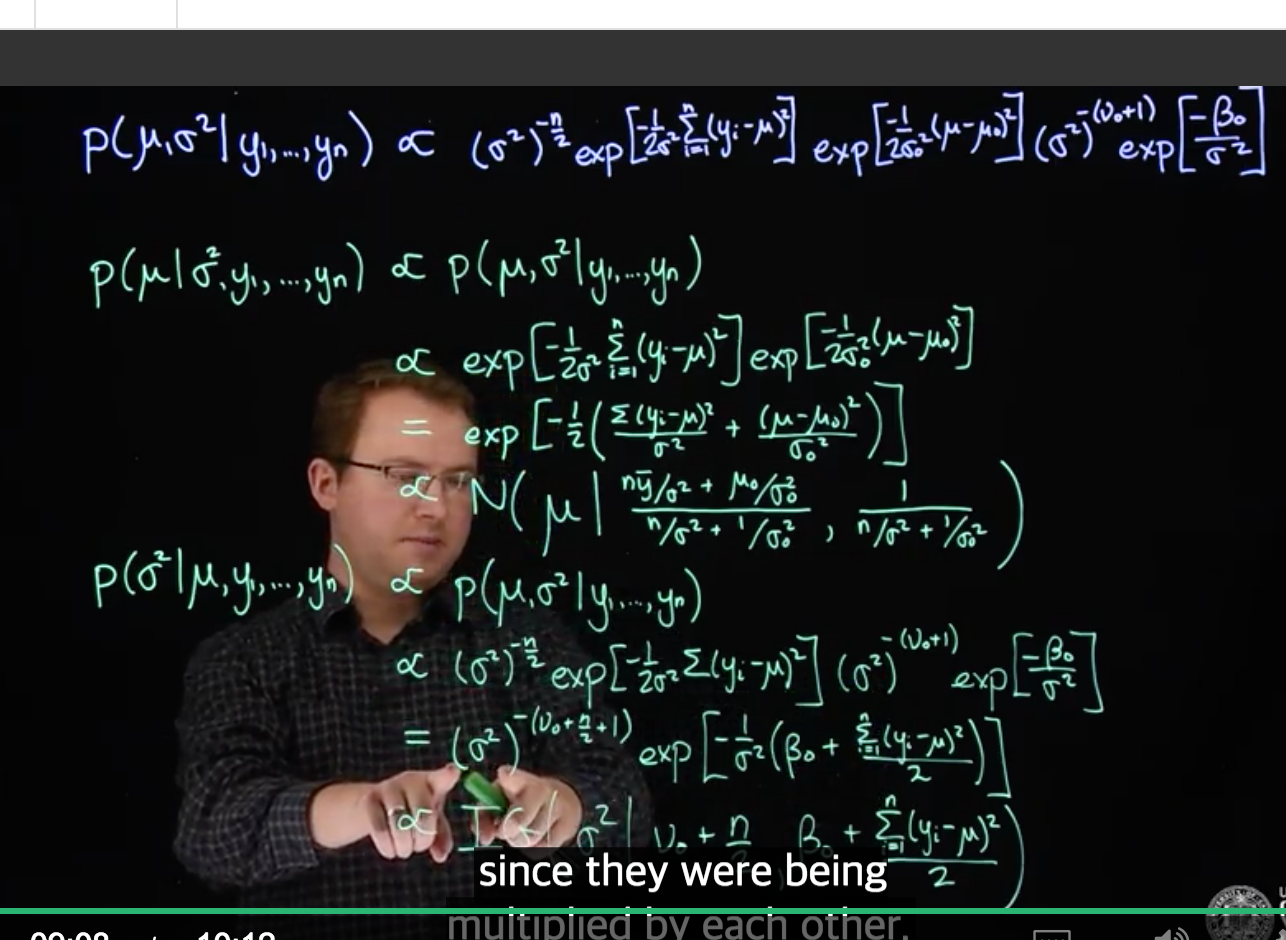 p(μ,σ²|y₁,...,yₙ) ∝ (σ²)^{-n/2} exp[-1/2σ² Σ_{i=1}^{n}(yᵢ-μ)²] exp[-1/2σ₀² (μ-μ₀)²] (σ²)^{-(ν₀+1)} exp[-β₀/σ²]
p(μ|σ²,y₁,...,yₙ) ∝ p(μ,σ²|y₁,...,yₙ)
∝ exp[-1/2σ² Σ_{i=1}^{n}(yᵢ-μ)²] exp[-1/2σ₀² (μ-μ₀)²]
= exp[-1/2(Σ(yᵢ-μ)²/σ² + (μ-μ₀)²/σ₀²)]
∝ N(μ| (nȳ/σ² + μ₀/σ₀²)/(n/σ² + 1/σ₀²), 1/(n/σ² + 1/σ₀²))
p(σ²|μ,y₁,...,yₙ) ∝ p(μ,σ²|y₁,...,yₙ)
∝ (σ²)^{-n/2} exp[-1/2σ² Σ(yᵢ-μ)²] (σ²)^{-(ν₀+1)} exp[-β₀/σ²]
= (σ²)^{-(ν₀+n/2+1)} exp[-1/σ² (β₀ + Σ_{i=1}^{n}(yᵢ-μ)²/2)]
∝ IG(σ²| ν₀ + n/2, β₀ + Σ_{i=1}^{n}(yᵢ-μ)²/2)
since they were being
multiplied by each other.